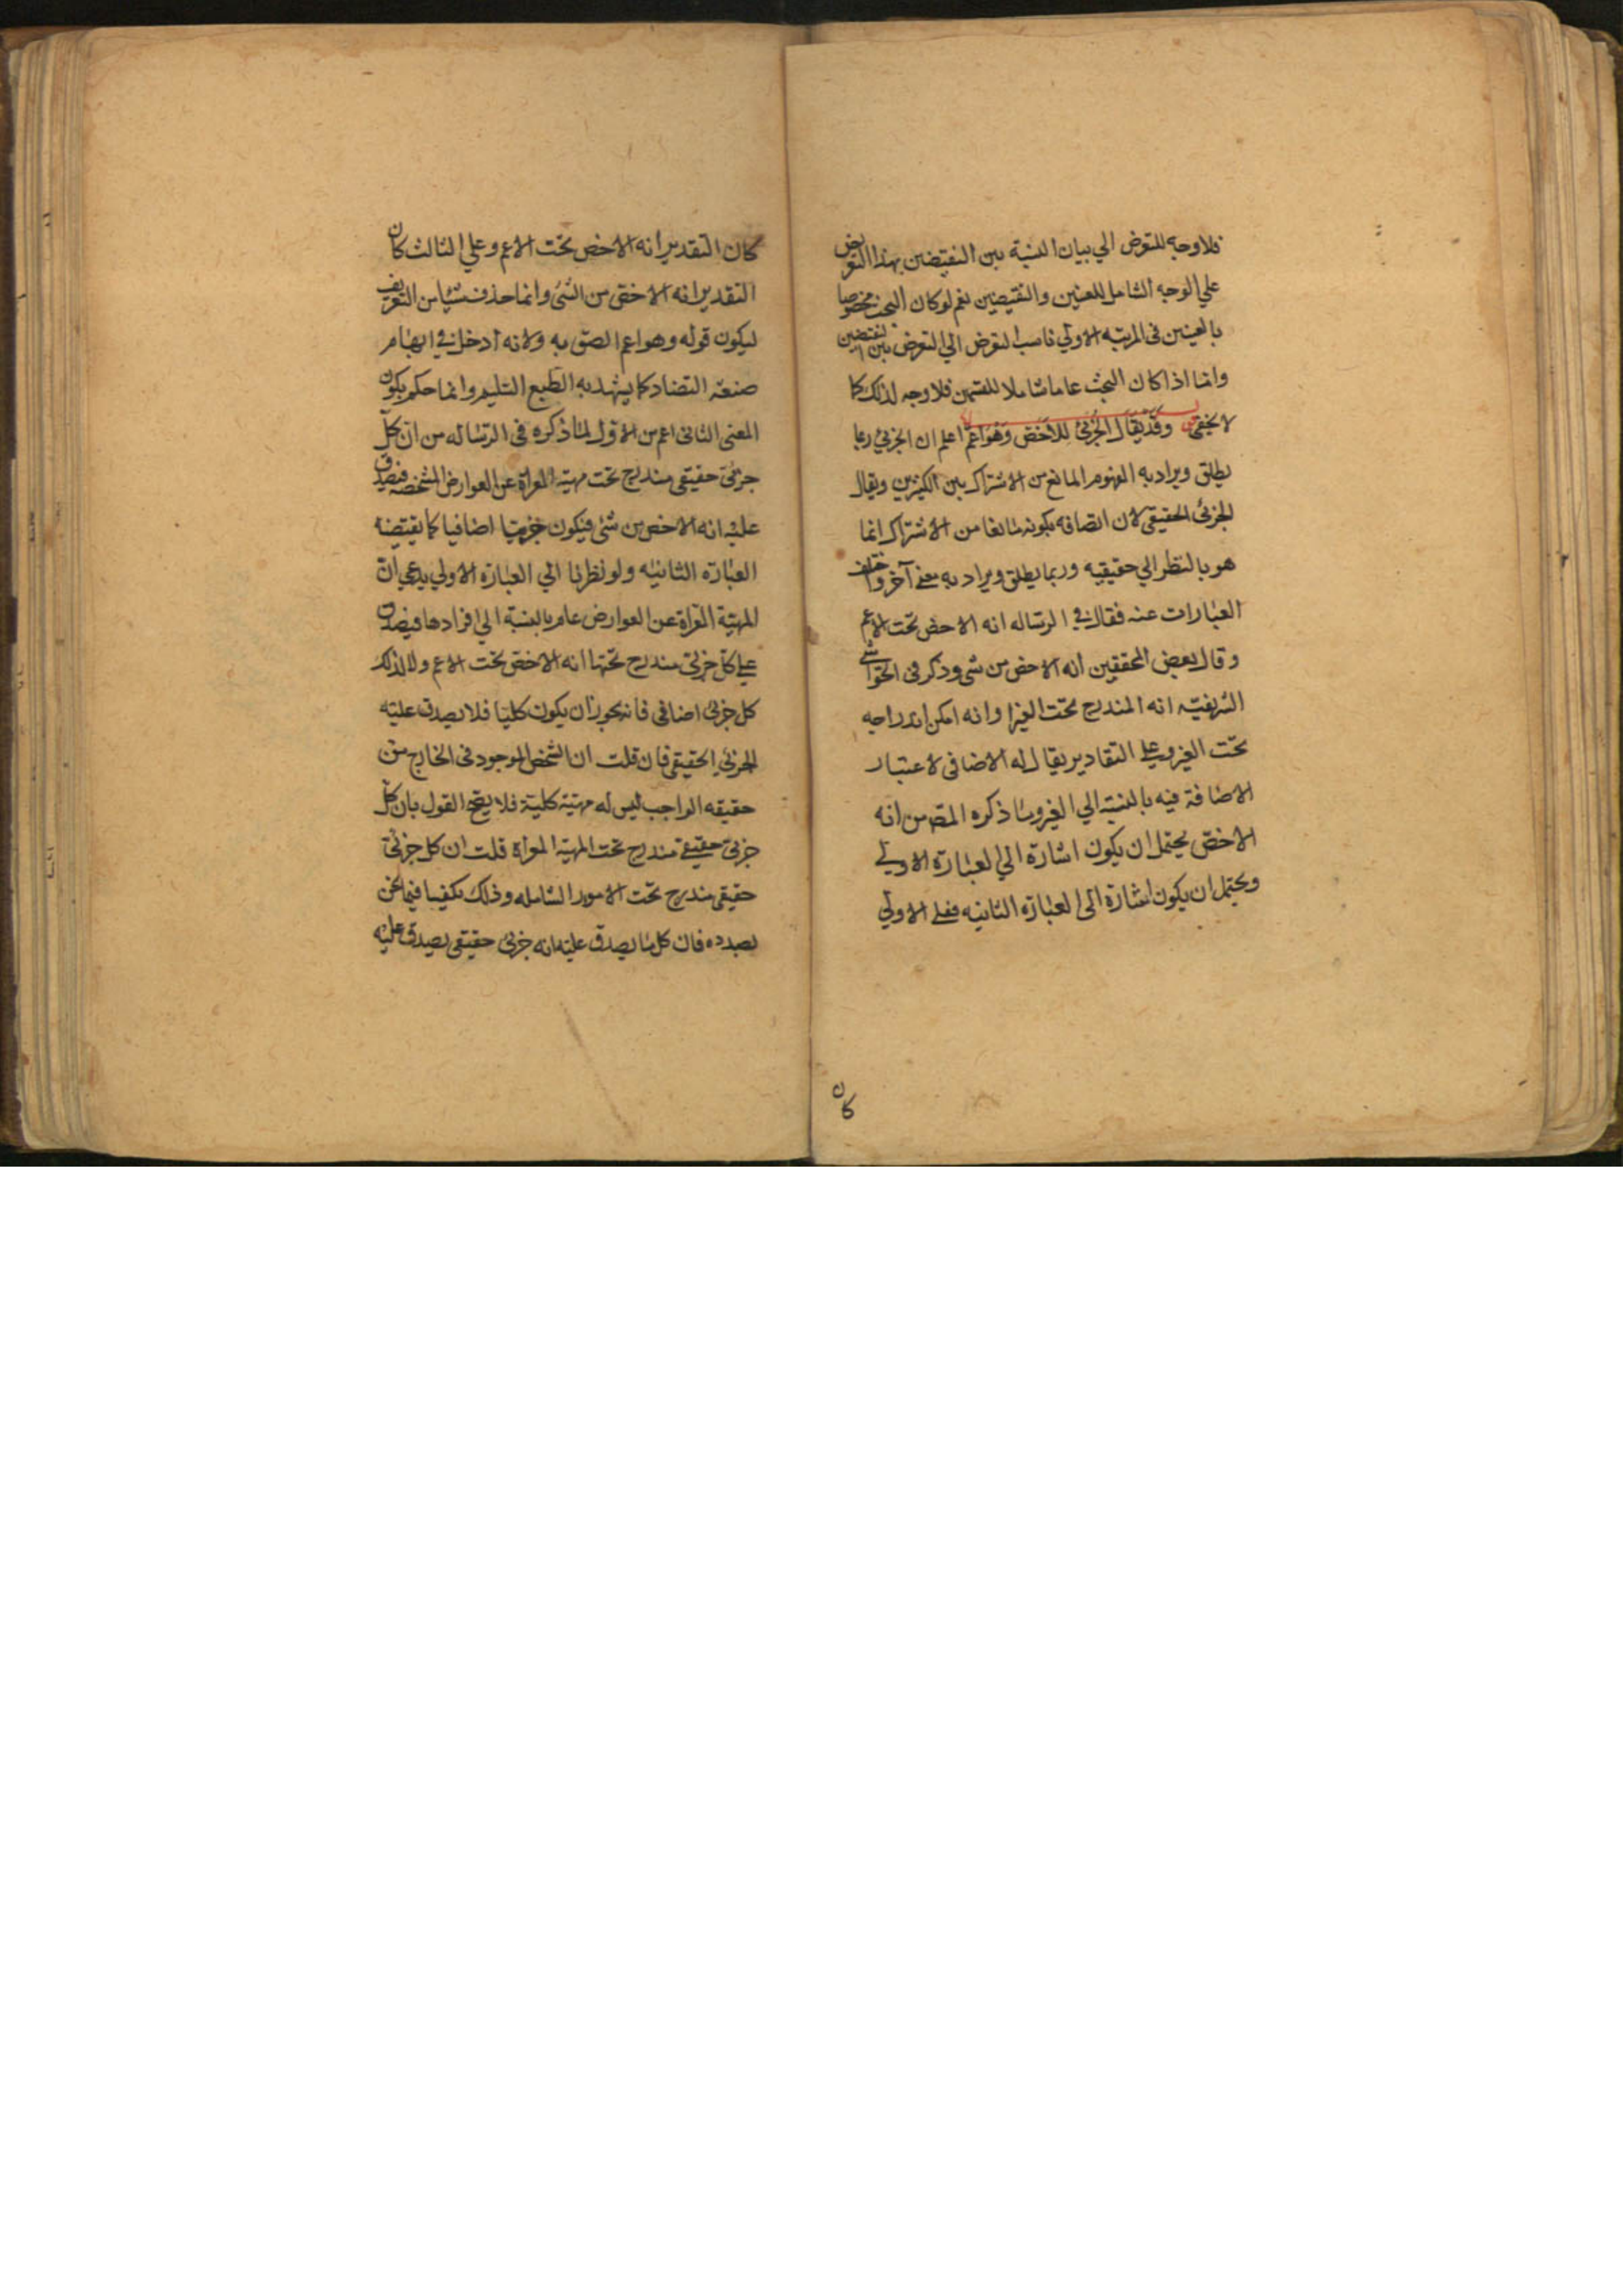 فلا وجه للتعرض الي بيان النسبة بين النقيضين بهذا التعرض
علي الوجه الشامل للعينين والنقيضين نعم لو كان البحث مخصوصا
بالعينين فى المرتبه الاولي ناسب التعرض الي التعرض بين النقيضين
وانما اذا كان البحث عاما شاملا للقسمين فلا وجه لذلك كما
لا يخفى وقد يقال الجزئ للاخص وهو اعم اعلم ان الجزئ ربما
يطلق ويراد به المفهوم المانع من الاشتراك بين الكثيرين ويقال
الجزئ الحقيقى لان اتصافه بكونه مانعا من الاشتراك انما
هو بالنظر الي حقيقيه وربما يطلق ويراد به معنى آخر واختلف
العبارات عنه فقال فى الرساله انه الاخص تحت الاعم
وقال بعض المحققين انه الاخص من شى وذكر فى الحواشى
الشريفيه انه المندرج تحت الغير او انه امكن اندراجه
تحت الغير وعلى التقادير يقال له الاضافى لاعتبار
الاضافة فيه بالنسبة الي الغير وما ذكره المصه من انه
الاخص يحتمل ان يكون اشارة الي العبارة الاولى
ويحتمل ان يكون اشارة الى العبارة الثانيه فعلى الاولي
كان
كان التقدير انه الاخص تحت الاعم وعلي الثالث كان
التقدير انه الاخص من الشئ وانما حذف شيئا من التعريف
ليكون قوله وهو اعم الصق به ولانه ادخل فى ايهام
صنعة التضاد كما يشهد به الطبع السليم وانما حكم بكون
المعنى الثانى اعم من الاول لما ذكره فى الرساله من ان كل
جزئى حقيقى مندرج تحت مهية المعراة عن العوارض المشخصه فيصدق
عليه انه الاخص من شئ فيكون جزئيا اضافيا كما يقتضيه
العبارة الثانيه ولو نظرنا الي العبارة الاولي يدعي ان
المهية المعراة عن العوارض عام بالنسبة الي افرادها فيصدق
على كل جزئى مندرج تحتها انه الاخص تحت الاعم ولا لذلك
كل جزئى اضافى فانه يجوز ان يكون كليا فلا يصدق عليه
الجزئى الحقيقى فان قلت ان الشخص الموجود فى الخارج من
حقيقه الواجب ليس له مهية كلية فلا يصح القول بان كل
جزئى حقيقى مندرج تحت المهية المعراة قلت ان كل جزئى
حقيقى مندرج تحت الامور الشامله وذلك يكفينا فيما نحن
بصدده فان كل ما يصدق عليه انه جزئى حقيقى يصدق عليه